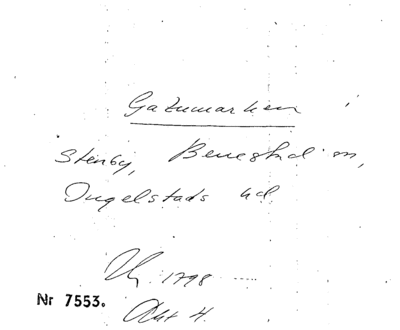 Gatumarken i
Stenby, Benestad sn,
Ingelstads hd.
1798
Nr 7553.
Akt 4.